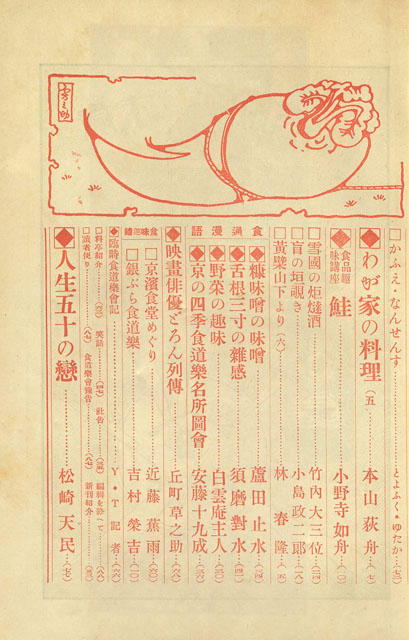 □かふえ・なんせんす……とよふく・ゆたか…(七三)
◆わが家の料理(五)……本山荻舟…(七)
◆食品趣味講座 鮭……小野寺如舟…(一〇)
□雪國の炬燵酒……竹内大三位…(二四)
□盲の垣覗き……小島政二郎…(一八)
□黄檗山下より(六)……林春隆…(一五)
食通漫語
◆糠味噌の味噌……蘆田止水…(三四)
◆舌根三寸の雜感……須磨對水
◆野菜の趣味……白雲庵主人
◆京の四季食道樂名所圖會……安藤十九成
◆映畫俳優どろん列傳……丘町草之助…(六八)
□京濱食堂めぐり……近藤蕉雨
□銀ぶら食道樂……吉村榮吉
◆臨時食道樂會記……Y・T記者…(六六)
□料亭紹介……笑話……社告……編輯を終へて…(八八)
□讀者便り……食道樂會豫告……新刊紹介
◆人生五十の戀……松崎天民…(七七)